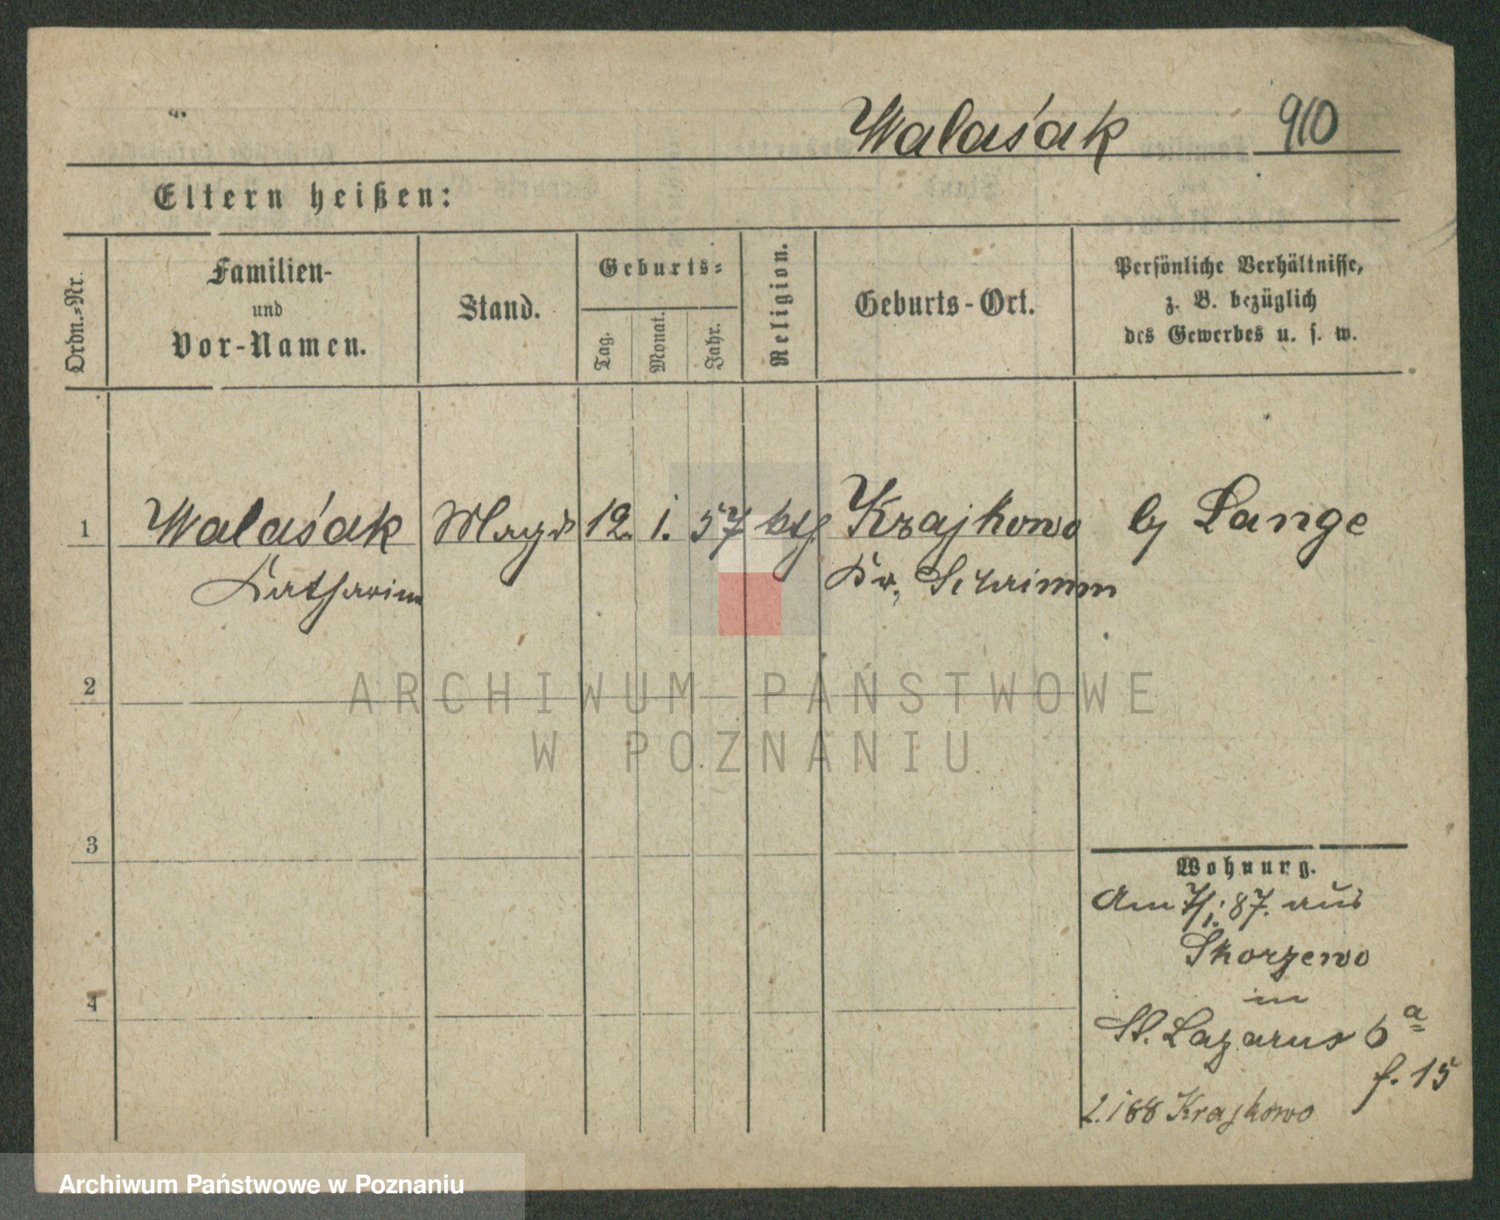 Walaśak 910
Eltern heißen:
Ordn.-Nr.
Familien-
und
Vor-Namen.
Stand.
Geburts-
Tag.
Monat.
Jahr.
Religion.
Geburts-Ort.
Persönliche Verhältnisse,
z. B. bezüglich
des Gewerbes u. s. w.
1 Walaśak Magd 12. 1. 57 kth Krajkowo by Lange
Katharina Kr. Schrimm
2
ARCHIWUM PAŃSTWOWE
W POZNANIU
3
Wohnung.
Am 7/1. 87. aus
Skorzewo
in
4
St. Lazarus 6 a
f. 15
2.1 88 Krajkowo
Archiwum Państwowe w Poznaniu